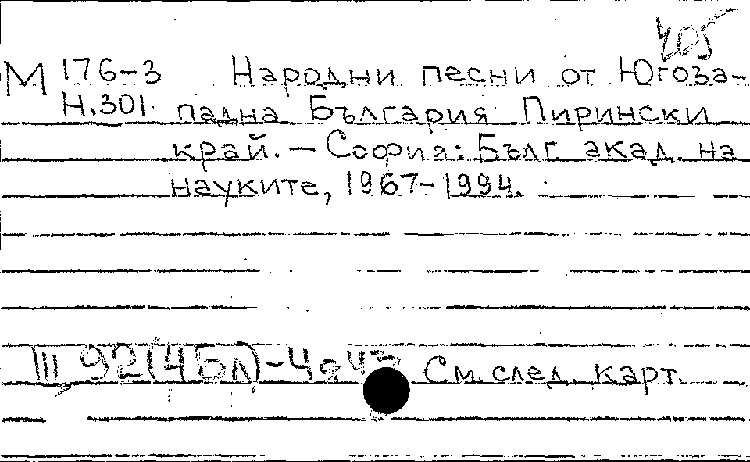 405
М 176-3 Народни песни от Югоза-
Н.301. падна България Пирински
край. - София: Бълг. акад. на
науките, 1967-1994.
III, 92(4Бл)-4 См. след. карт.